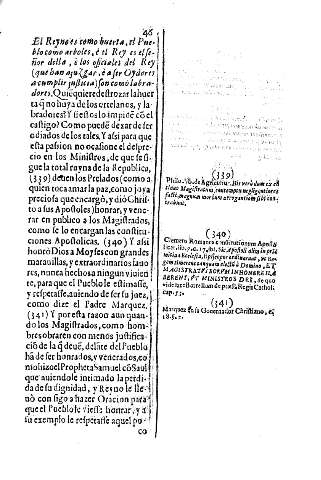 46
El Reyno es como huerta, el Pue-
blo como arboles, é el Rey es el se-
ñor della, é los oficiales del Rey
(que han a juzgar, é a ser Oydores
a cumplir justicia) son como labra-
dores. Qui quiere destrozar la huer
ta q̃ no huya de los ortelanos, y la-
bradores? Y si estos lo impidẽ cõ el
castigo? Como puedẽ dexar de ser
odiados de los tales. Y assi para que
esta passion no ocasione el despre-
cio en los Ministros, de que se si-
gue la total ruyna de la Republica,
(339) deuen los Prelados (como a
quien toca amar la paz, como joya
preciosa que encargó, y dió Christ-
to a sus Apostoles) honrar, y vene-
rar en publico a los Magistrados,
como se lo encargan las constitu-
ciones Apostolicas. (340) Y assi
honró Dios a Moyses con grandes
marauillas, y extraordinarios fauo
res, nunca hechos a ningun vivien
te, para que el Pueblo le estimasse,
y respetasse, auiendo de ser su juez,
como dize el Padre Marquez.
(341) Y por esta razon aun quan-
do los Magistrados, como hom-
bres obraren con menos justifica-
ció de la q̃ deuẽ, delãte del Pueblo
hã de ser honrados, y venerados, co
mo hizo el Propheta Samuel cõ Saul
que auiendole intimado la perdi-
da de su dignidad, y Reyno le lle-
nò con sigo a hazer Oracion para
que el Pueblo le viesse honrar, y a
su exemplo le respetasse aquel po-
co
(339)
Philo. lib. de Agricultur.
(340)
Clemens Romanus in constitutionem Apostoli
cas, lib. 7. c. 17.
MAGISTRATUS
ET MINISTROS DEI, de quo
vide
cap. 5.
(341)
Marquez en su Gouernador Christiano,
18. §. 2.